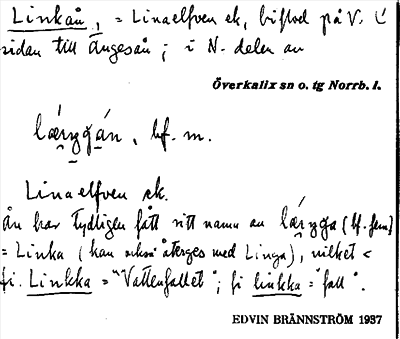 Linkån, = Linaelfven ek, biflod på V.
sidan till Ängesån; i N. delen av
Överkalix sn o. tg Norrb. l.
bf. m.
Linaelfven ek.
Ån har tydligen fått sitt namn av (bf. fem)
= Linka (kan också återges med Linga), vilket <
fi. Linkka = "Vattenfallet"; fi linkka = "fall".
EDVIN BRÄNNSTRÖM 1937